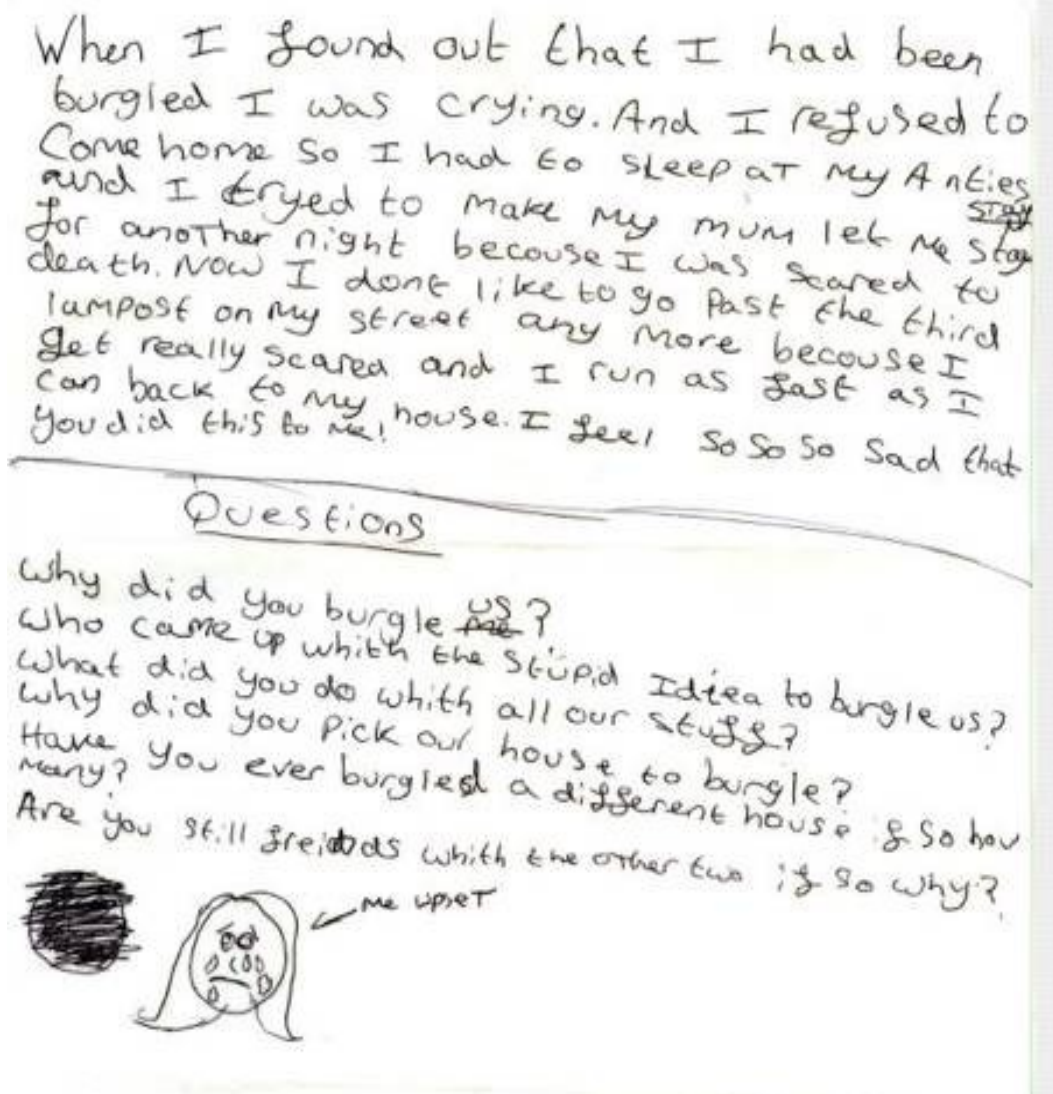 When I found out that I had been
burgled I was crying. And I refused to
Come home So I had to sleep at My Anties
and I tryed to make my mum let me stay
for another night becouse I was scared to
death. Now I dont like to go past the third
lampost on my street any more becouse I
get really scared and I run as fast as I
can back to my house. I feel so so so sad that
you did this to me!
Questions
Why did you burgle us?
Who came up whith the stupid Idiea to burgle us?
What did you do whith all our stuff?
Why did you pick our house to burgle?
Have you ever burgled a different house if so how
many?
Are you still freinds whith the other two if so why?
me upset